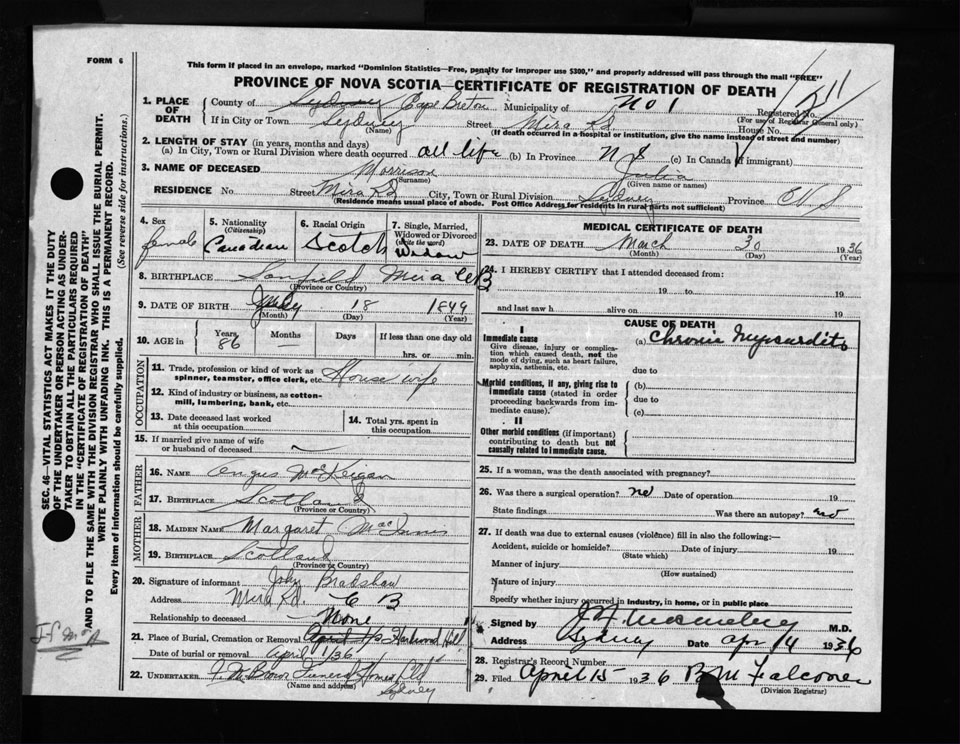 FORM 6
This form if placed in an envelope, marked "Dominion Statistics—Free, penalty for improper use $300," and properly addressed will pass through the mail "FREE"
PROVINCE OF NOVA SCOTIA—CERTIFICATE OF REGISTRATION OF DEATH
1. PLACE OF DEATH County of Sydney Cape Breton Municipality of No 1 Registered No. 211
(For use of Registrar General only)
If in City or Town Sydney Street Mira Rd House No.
(Name) (If death occurred in a hospital or institution, give the name instead of street and number)
2. LENGTH OF STAY (in years, months and days)
(a) In City, Town or Rural Division where death occurred all life (b) In Province N S (c) In Canada (if immigrant)
3. NAME OF DECEASED Morrison Julia
(Surname) (Given name or names)
RESIDENCE No. Street Mira Rd City, Town or Rural Division Sydney Province N S
(Residence means usual place of abode. Post Office Address for residents in rural parts not sufficient)
4. Sex female
5. Nationality (Citizenship) Canadian
6. Racial Origin Scotch
7. Single, Married, Widowed or Divorced (write the word) Widow
8. BIRTHPLACE Mira CB
(Province or Country)
9. DATE OF BIRTH July 18 1849
(Month) (Day) (Year)
10. AGE in Years 86 Months Days If less than one day old
hrs. or min.
OCCUPATION
11. Trade, profession or kind of work as spinner, teamster, office clerk, etc. House wife
12. Kind of industry or business, as cotton-mill, lumbering, bank, etc.
13. Date deceased last worked at this occupation
14. Total yrs. spent in this occupation
15. If married give name of wife or husband of deceased
FATHER
16. NAME Angus McKeigan
17. BIRTHPLACE Scotland
(Province or Country)
MOTHER
18. MAIDEN NAME Margaret MacInnis
19. BIRTHPLACE Scotland
(Province or Country)
20. Signature of informant John Bradshaw
Address Mira Rd. C B
Relationship to deceased None
21. Place of Burial, Cremation or Removal Hardwood Hill
Date of burial or removal April 1/36
22. UNDERTAKER Funeral Home Ltd
(Name and address) Sydney
MEDICAL CERTIFICATE OF DEATH
23. DATE OF DEATH March 30 1936
(Month) (Day) (Year)
24. I HEREBY CERTIFY that I attended deceased from:
19 to 19
and last saw h alive on 19
CAUSE OF DEATH
I
Immediate cause (a) Chronic Myocarditis
Give disease, injury or complication which caused death, not the mode of dying, such as heart failure, asphyxia, asthenia, etc.
due to
Morbid conditions, if any, giving rise to immediate cause (stated in order proceeding backwards from immediate cause).
(b)
due to
(c)
II
Other morbid conditions (if important) contributing to death but not causally related to immediate cause.
25. If a woman, was the death associated with pregnancy?
26. Was there a surgical operation? no Date of operation 19
State findings Was there an autopsy? no
27. If death was due to external causes (violence) fill in also the following:—
Accident, suicide or homicide? Date of injury 19
(State which)
Manner of injury
(How sustained)
Nature of injury
Specify whether injury occurred in industry, in home, or in public place
Signed by M.D.
Address Sydney Date Apr 14 1936
28. Registrar's Record Number
29. Filed April 15 1936 B M Falconer
(Division Registrar)
SEC. 46—VITAL STATISTICS ACT MAKES IT THE DUTY
OF THE UNDERTAKER OR PERSON ACTING AS UNDER-
TAKER TO OBTAIN ALL THE PARTICULARS REQUIRED
IN THE "CERTIFICATE OF REGISTRATION OF DEATH"
AND TO FILE THE SAME WITH THE DIVISION REGISTRAR WHO SHALL ISSUE THE BURIAL PERMIT.
WRITE PLAINLY WITH UNFADING INK. THIS IS A PERMANENT RECORD.
Every item of information should be carefully supplied. (See reverse side for instructions.)